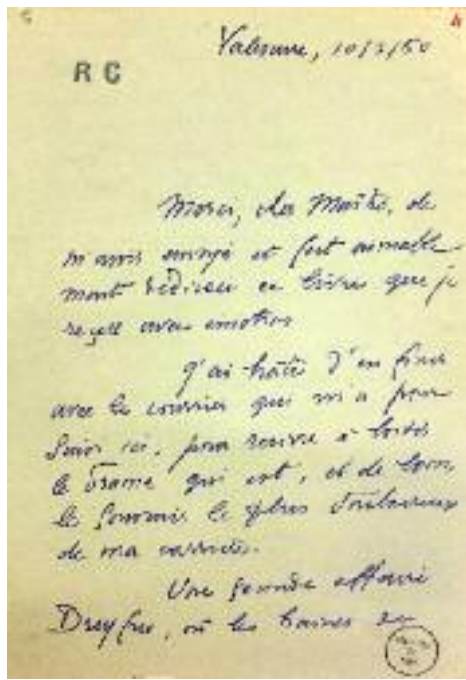 4
Valescure, 10/3/50
R C
Merci, cher Maître, de
m'avoir envoyé et fort aimable-
ment dédicacé ce livre que je
reçois avec émotion
J'ai hâte d'en finir
avec le courrier qui m'a pour-
suivi ici, pour revivre à loisir
le drame qui est, et de loin,
le souvenir le plus douloureux
de ma carrière.
Une grande affaire
Dreyfus, où les haines